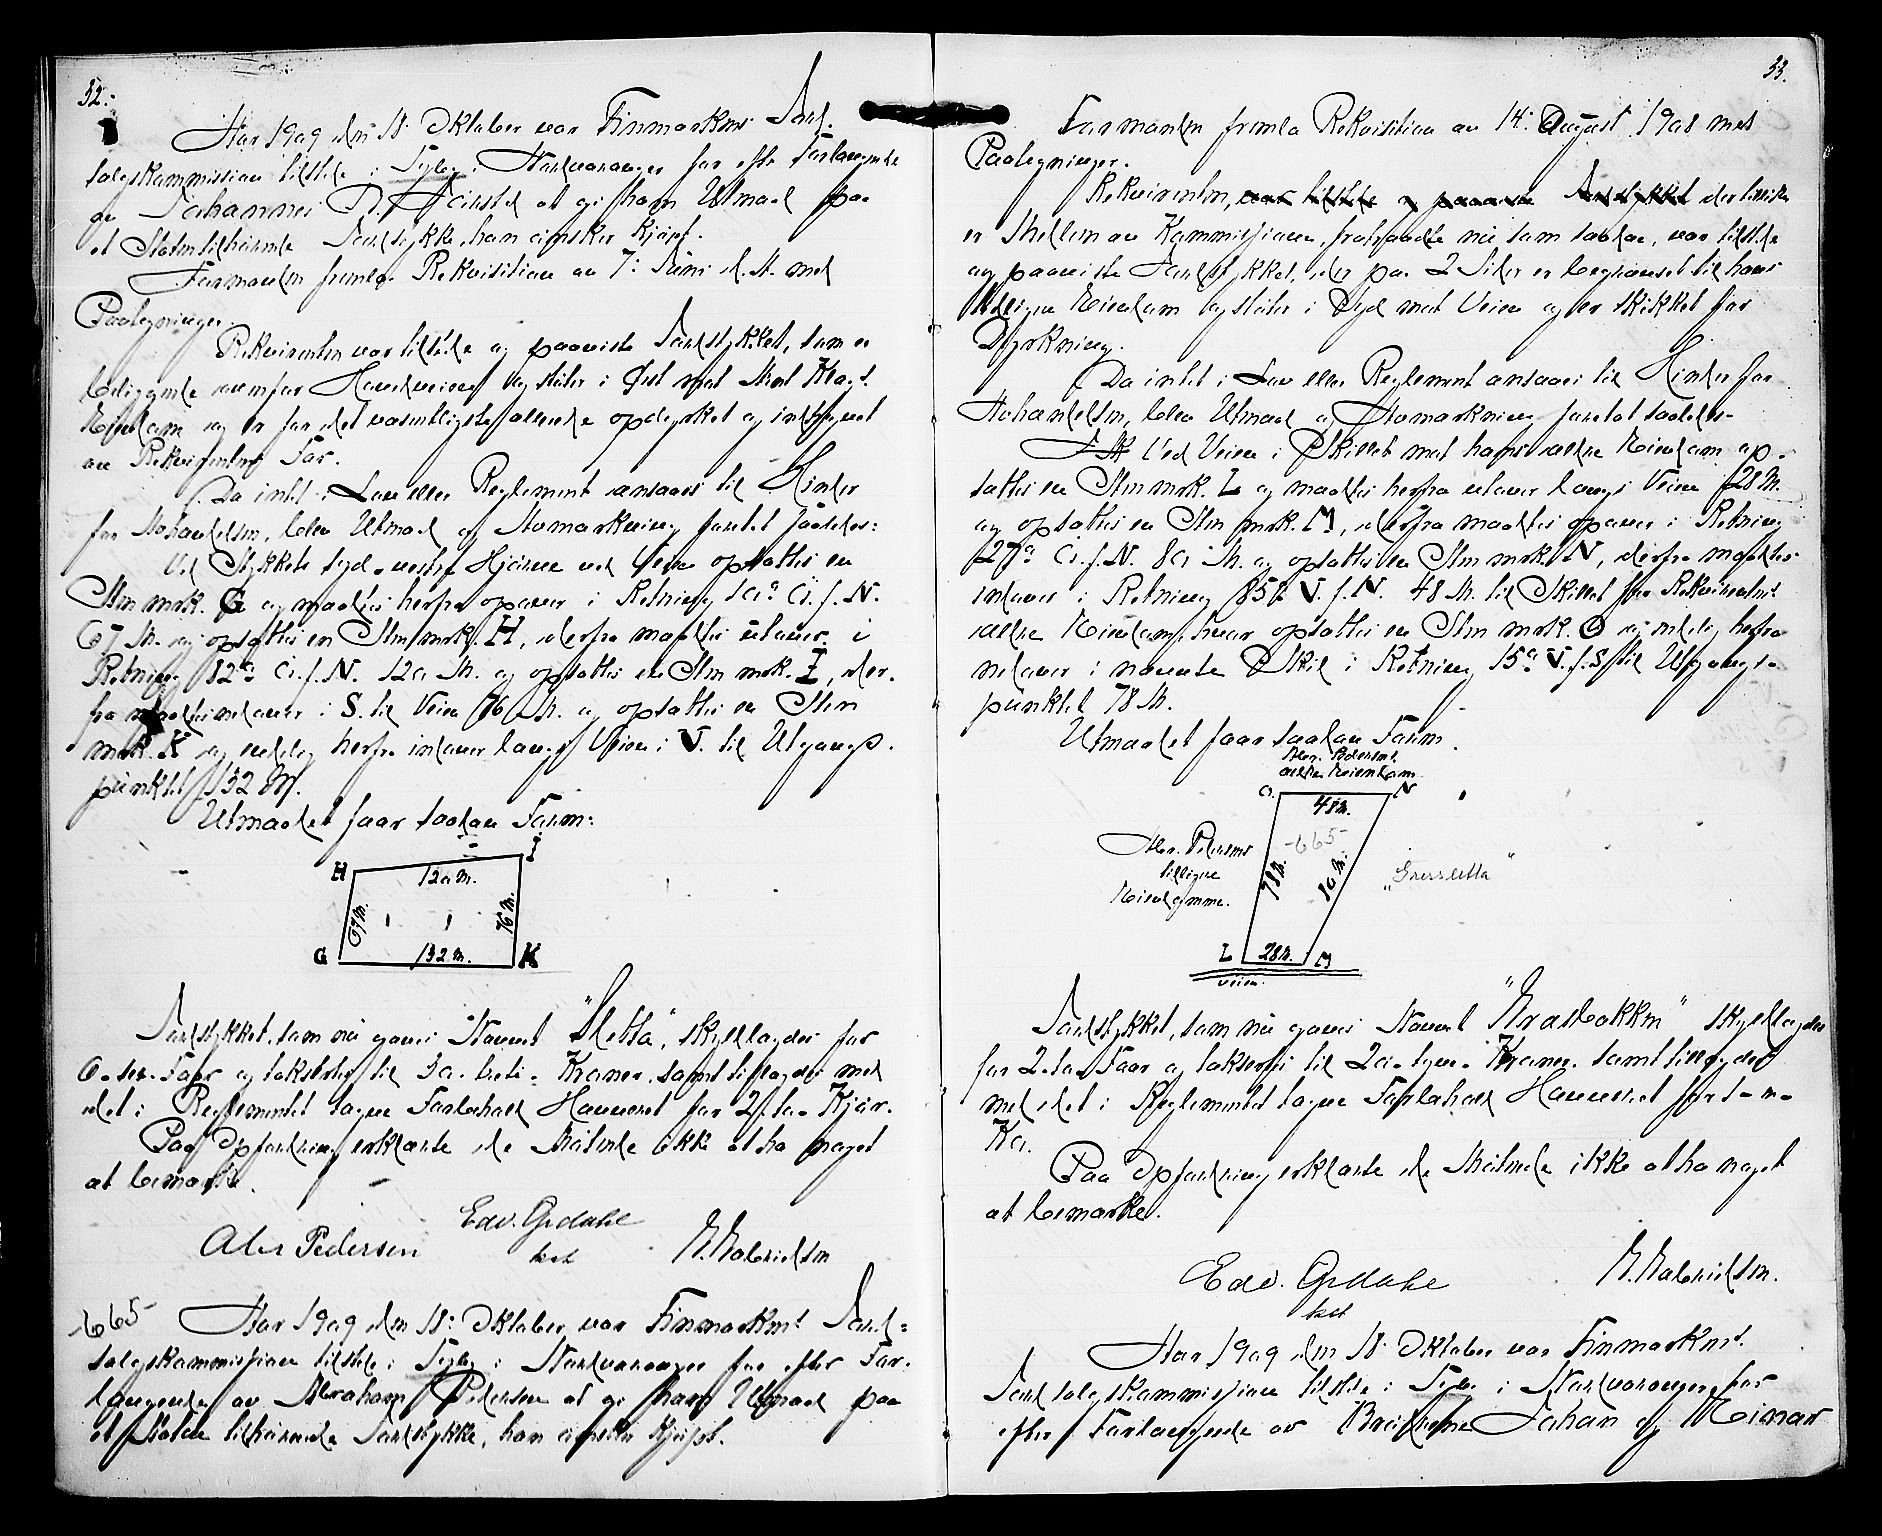 32.
Aar 1909 den 11. Oktober var Finmarkens Jord-
salgskommission tilstede i Tyby i Nordvaranger for efter Forlangende
av Johannes at gi ham Utmaal paa
et Staten tilhørende Jordstykke, han ønsker kjøpt.
Formanden fremla Rekvisition av 7. Juni d. A. med
Paategninger.
Rekvirenten var tilstede og paaviste Jordstykket, som er
beliggende ovenfor Hovedveien og støter i Øst mot
Eiendom og er for det væsentligste allerede opdyrket og indhegnet
av Rekvirentens Far.
Da intet i Lov eller Reglement ansaaes til Hinder
for Avhændelsen, blev Utmaal og Avmerkning foretat saaledes:
Ved Stykkets sydvestre Hjørne ved Veien opsattes en
Sten mrk. G og maaltes herfra opover i Retning 10° Ø.f.N.
67 M. og opsattes en Sten mrk. H, derfra maaltes utover i
Retning 82° Ø.f.N. 120 M. og opsattes en Sten mrk. I, der-
fra maaltes nedover i S. til Veien 76 M. og opsattes en Sten
mrk. K og endelig herfra indover langs Veien i V. til Utgangs-
punktet 132 M.
Utmaalet faar saadan Form:
H I
120 M.
67 M. 76 M.
G 132 M. K
Jordstykket, som nu gaves Navnet "Sletta", skyldlagdes for
6 - seks - Øre og taksertes til 30 - treti - Kroner, samt tillagdes med
det i Reglementet tagne Forbehold Havneret for 2 - to - Kjør.
Paa Opfordring erklærte de Møtende ikke at ha noget
at bemerke.
Edv. Grdahl
Abr Pedersen kst E. Gabrielsen
665 Aar 1909 den 11. Oktober var Finmarkens Jord-
salgskommission tilstede i Tyby i Nordvaranger for efter For-
langende av Abraham Pedersen at gi ham Utmaal paa
et Staten tilhørende Jordstykke, han ønsker kjøpt.
33.
Formanden fremla Rekvisition av 14. August 1908 med
Paategninger.
Rekvirenten, var tilstede og paaviste Jordstykket der
er Medlem av Kommissionen, fratraadte nu som saadan, var tilstede
og paaviste Jordstykket, der paa 2 Sider er begrænset til hans
tidligere Eiendom og støter i Syd mot Veien og er skikket for
Dyrkning.
Da intet i Lov eller Reglement ansaaes til Hinder for
Avhændelsen, blev Utmaal og Avmerkning foretat saaledes:
Ved Veien i Skillet mot hans ældre Eiendom op-
sattes en Sten mrk. L og maaltes herfra utover langs Veien 28 M.
og opsattes en Sten mrk. M, derfra maaltes opover i Retning
27° Ø.f.N. 80 M. og opsattes en Sten mrk. N, derfra maaltes
indover i Retning 85° V.f.N. 48 M. til Skillet for Rekvirentens
ældre Eiendom, hvor opsattes en Sten mrk. O og endelig herfra
nedover i nævnte Skil i Retning 15° V.f.S. til Utgangs-
punktet 78 M.
Utmaalet faar saadan Form.
Abr. Pedersens
ældre Eiendom
O. N
48 M.
665
Abr. Pedersens
tidligere
Eiendomme.
78 M. 80 M.
"Gressletta"
L 28 M. M
Veien.
Jordstykket, som nu gaves Navnet "Græsbakken" skyldlagdes
for 2 - to - Øre og taksertes til 20 - tyve - Kroner, samt tillagdes
med det i Reglementet tagne Forbehold Havneret for 1 - en -
Ko.
Paa Opfordring erklærte de Møtende ikke at ha noget
at bemerke.
Edv. Grdahl E. Gabrielsen.
kst
Aar 1909 den 11. Oktober var Finmarkens
Jordsalgskommission tilstede i Tyby i Nordvaranger for
efter Forlangende av Brødrene Johan og Einar